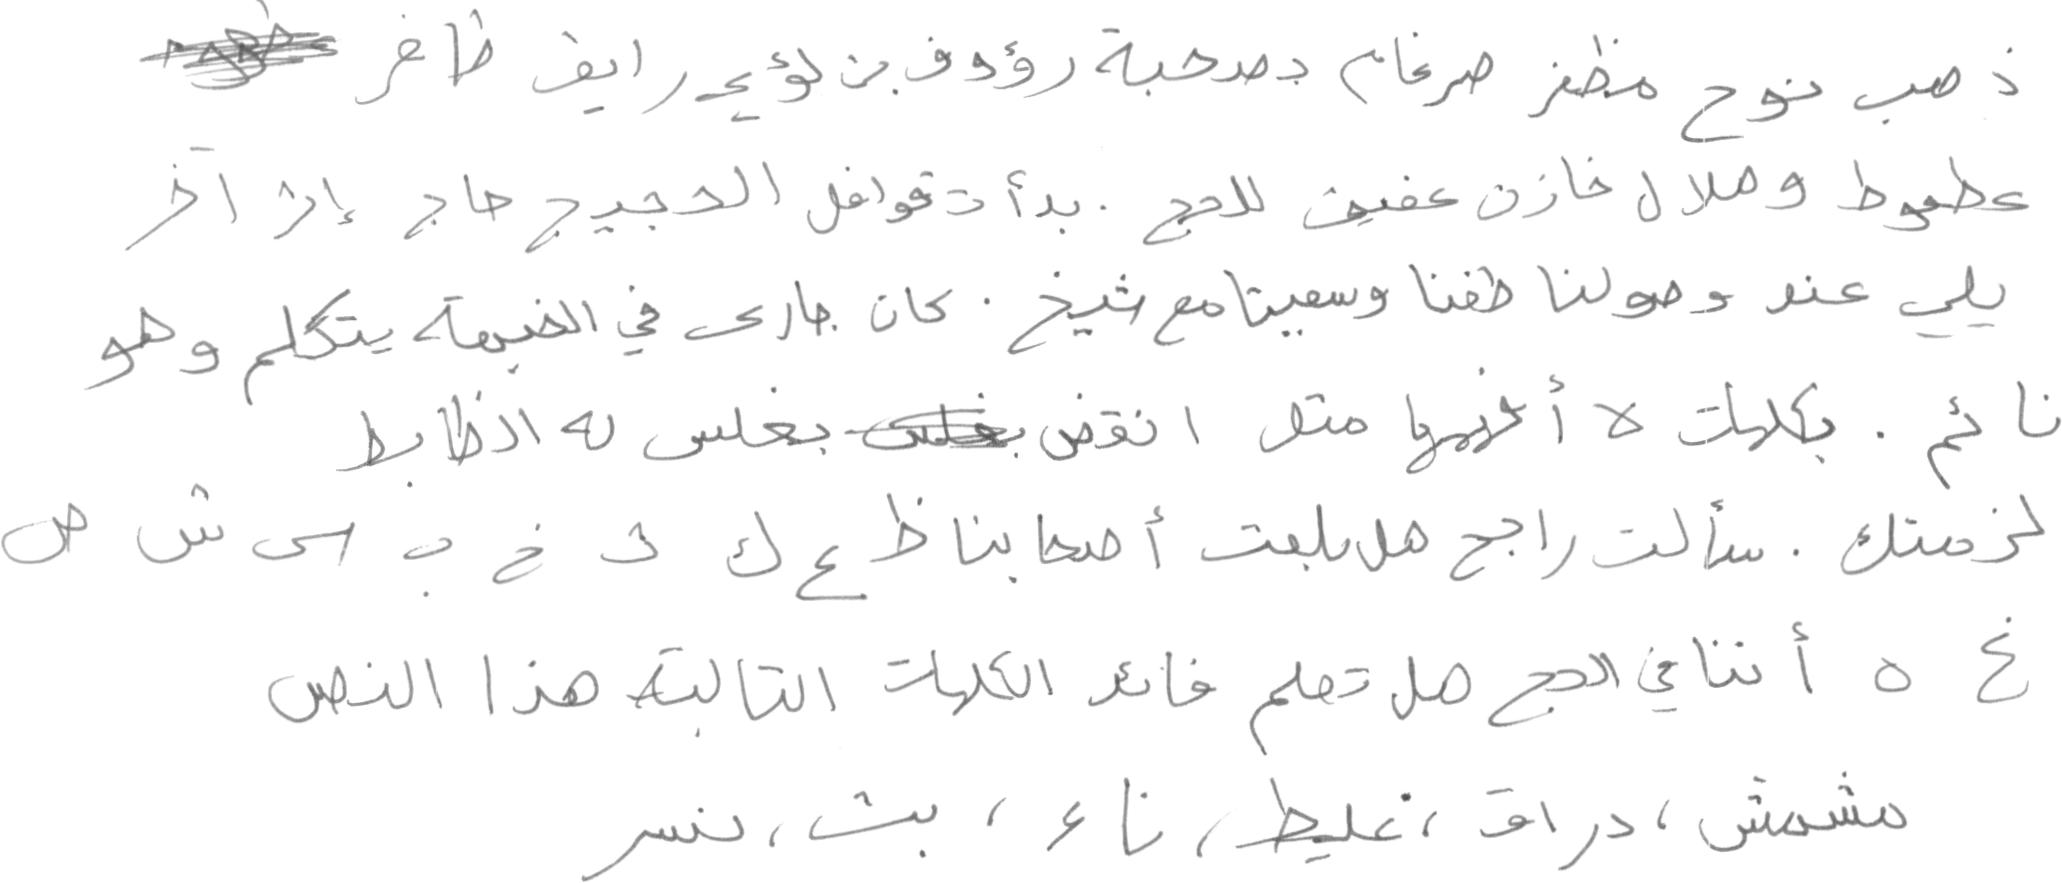 ذهب نوح مظفر ضرغام بصحبة رؤوف بن لؤي رايف ظافر
عطعوط وهلال خازن عفيف للحج . بدأت قوافل الحجيج حاج إثر آخر
يلي عند وصولنا طفنا وسعينا مع شيخ . كان جارى في الخيمة يتكلم وهو
نائم . بكلمات لا أفهمها مثل انقض بغلس له الظابط
لخزمتك . سألت راجح هل بلغت أصحابنا ظ ع ك ث خ ب س ش ص
غ ه أننا في الحج هل تعلم فائد الكلمات التالية هذا النص
مشمش ، دراق ، غليظ ، ناء ، بث ، نسر